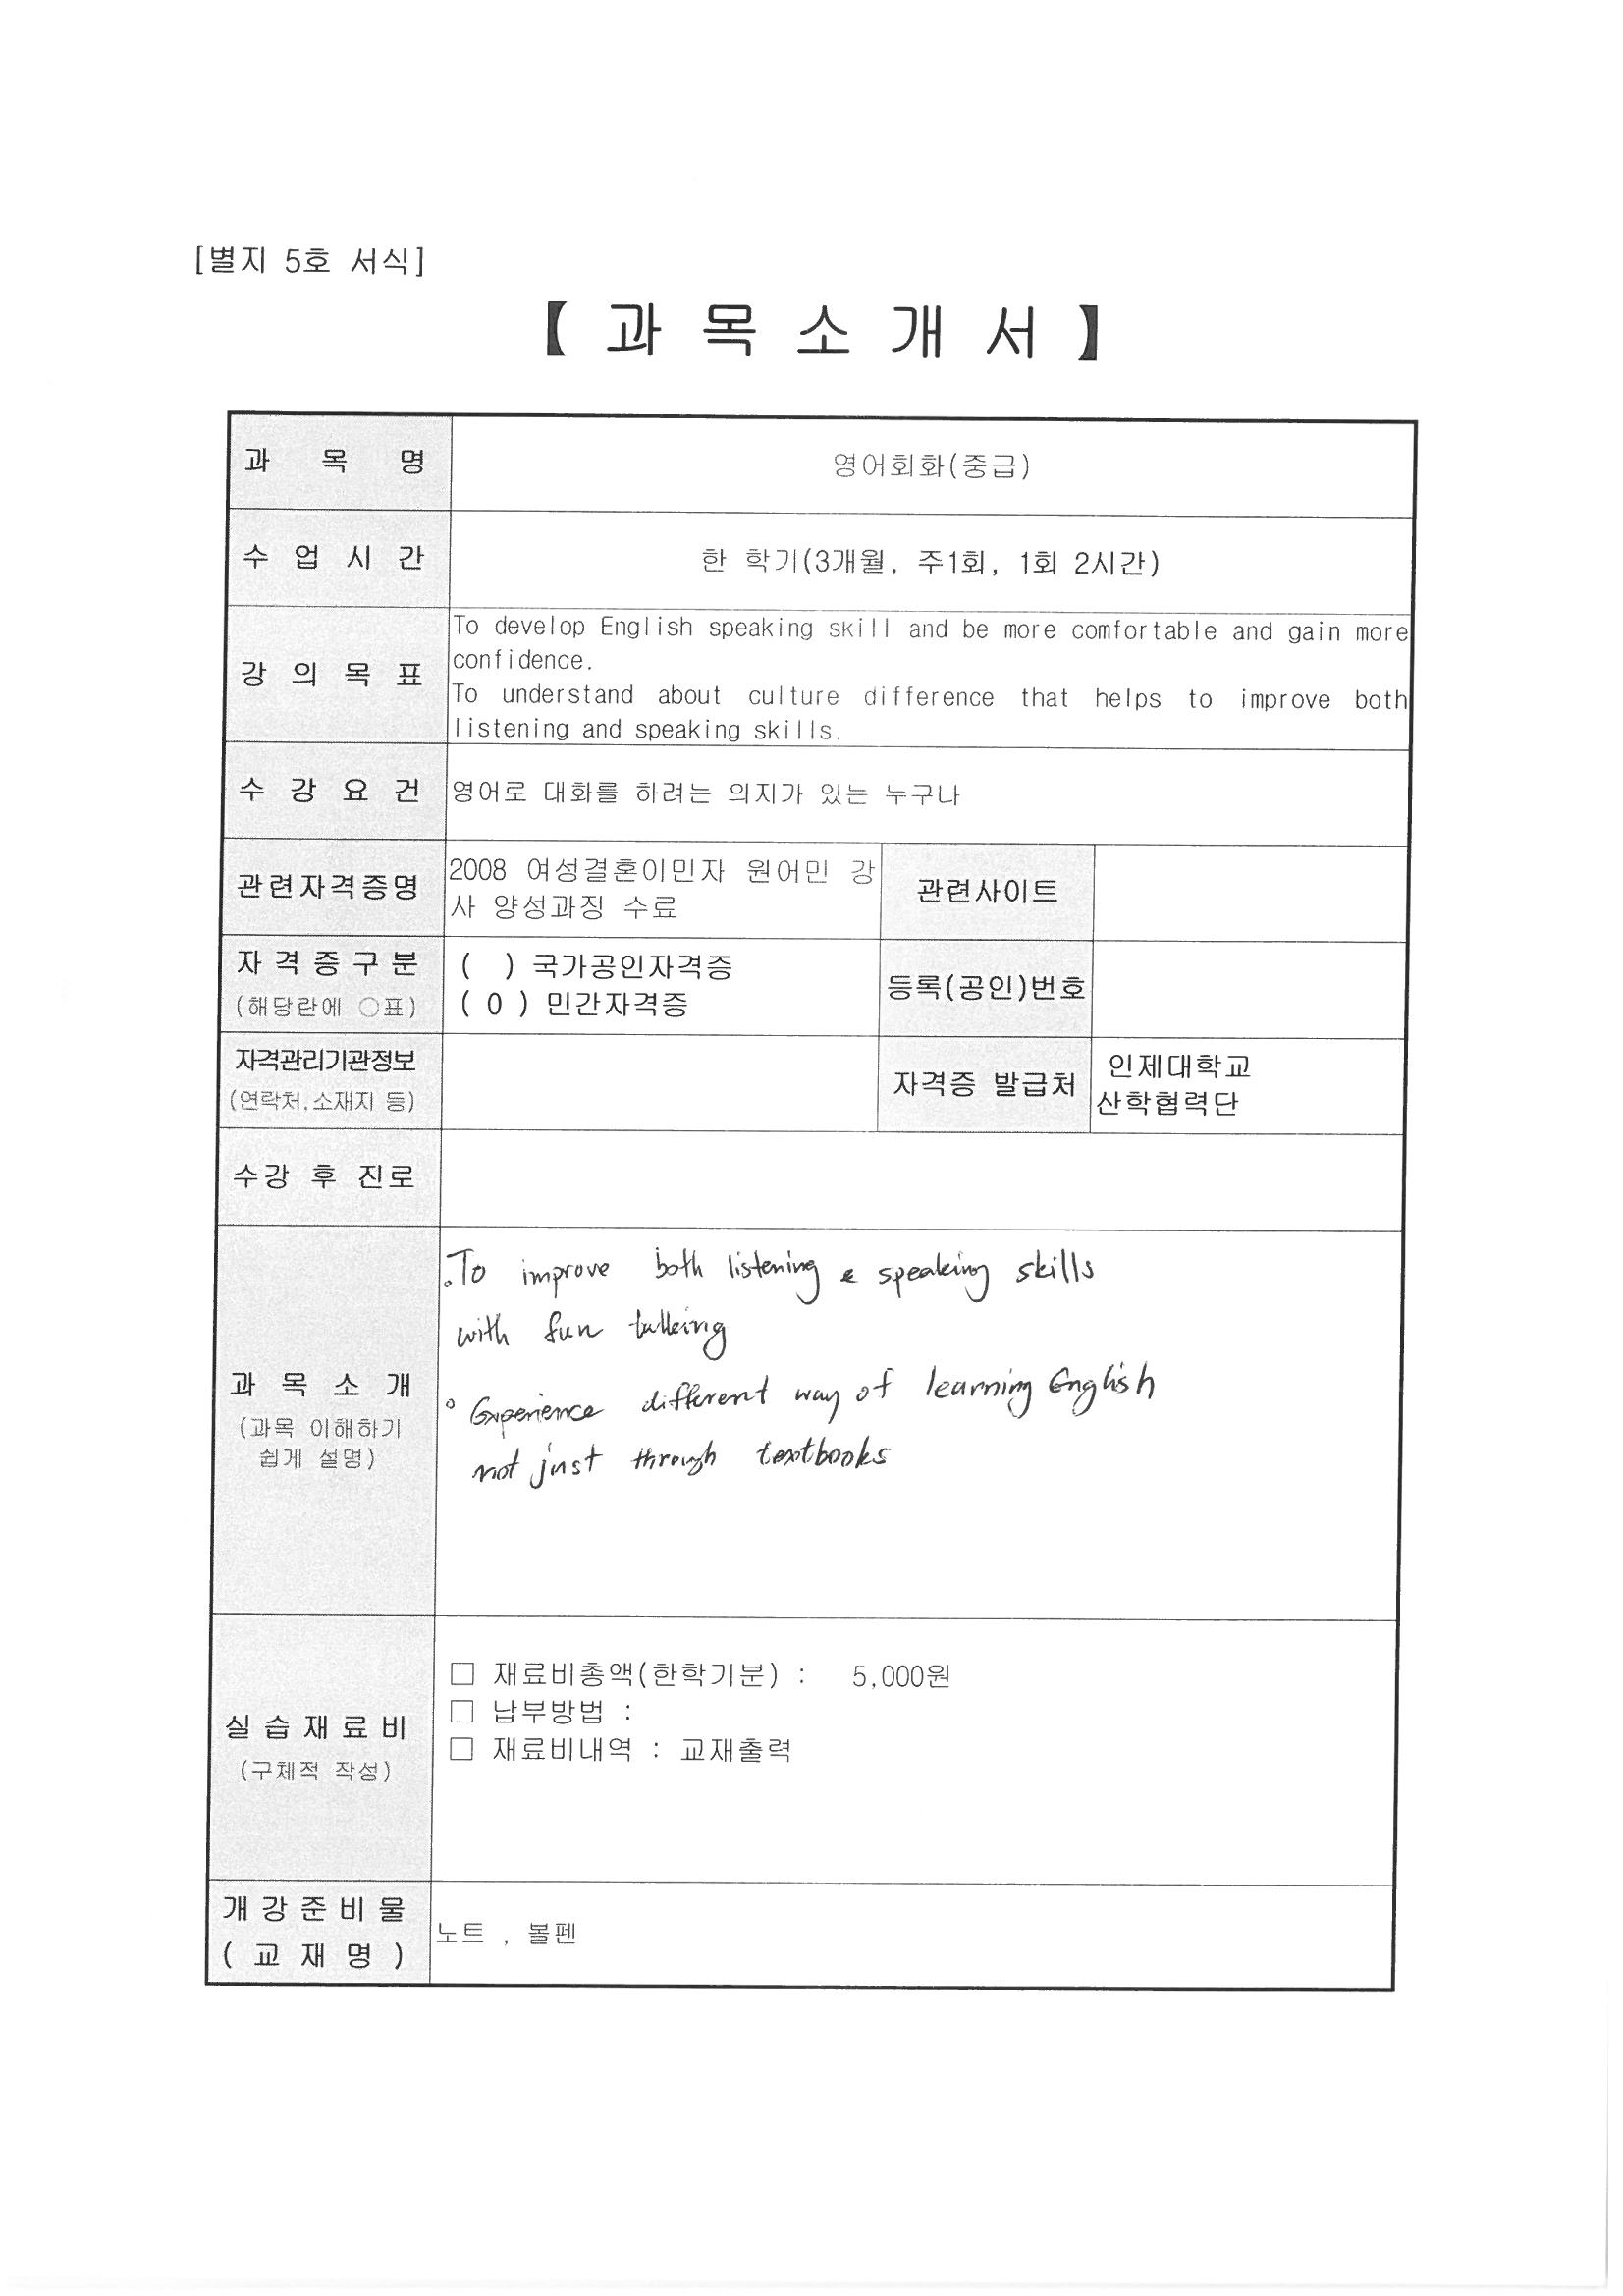 [별지 5호 서식]
【 과 목 소 개 서 】
과 목 명
영어회화(중급)
수 업 시 간
한 학기(3개월, 주1회, 1회 2시간)
강 의 목 표
To develop English speaking skill and be more comfortable and gain more
confidence.
To understand about culture difference that helps to improve both
listening and speaking skills.
수 강 요 건
영어로 대화를 하려는 의지가 있는 누구나
관련자격증명
2008 여성결혼이민자 원어민 강
사 양성과정 수료
관련사이트
자 격 증 구 분
(해당란에 ○표)
( ) 국가공인자격증
( 0 ) 민간자격증
등록(공인)번호
자격관리기관정보
(연락처,소재지 등)
자격증 발급처
인제대학교
산학협력단
수강 후 진로
과 목 소 개
(과목 이해하기
쉽게 설명)
。To improve both listening & speaking skills
with fun talking
° Experience different way of learning English
not just through textbooks
실 습 재 료 비
(구체적 작성)
□ 재료비총액(한학기분) : 5,000원
□ 납부방법 :
□ 재료비내역 : 교재출력
개 강 준 비 물
( 교 재 명 )
노트 , 볼펜